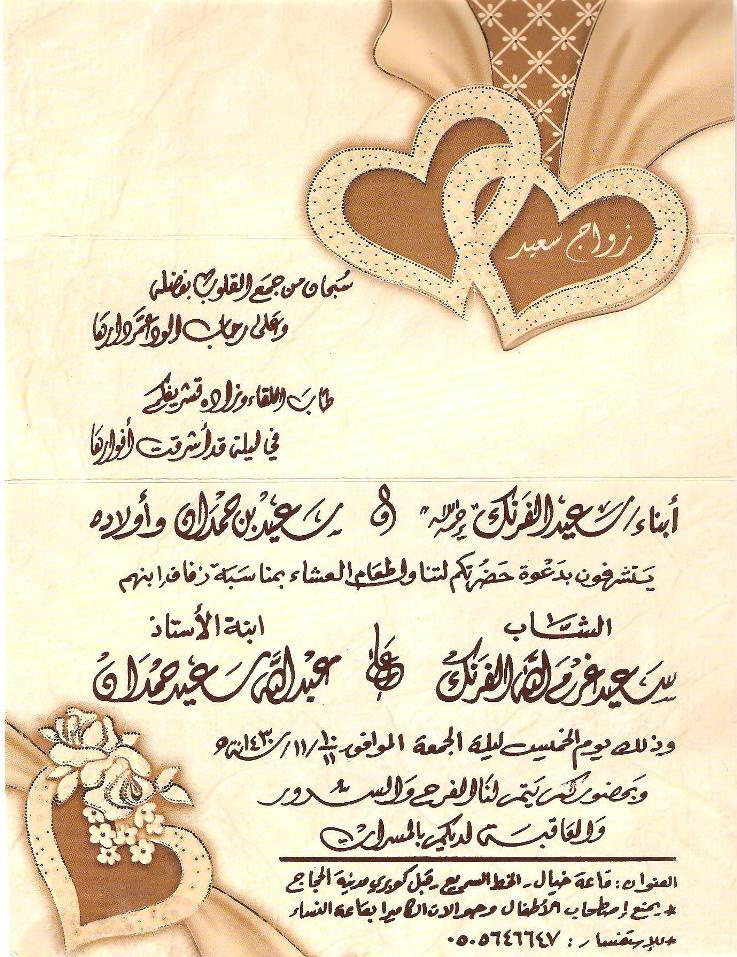 زواج سعيد
سُبحان من جمَع القلوب بفضله
وعلى رحاب الود عمَّر دارها
طابَ اللقاء وزاده تشريفكم
في ليلة قد أشرقت أنوارها
أبناء/ سَعيد الفرنك "رحمه الله" و سَعيد بن حمدان وأولاده
يتشرفون بدعوة حضرتكم لتناول طعام العشاء بمناسبة زفاف ابنهم
الشاب ابنة الأستاذ
سَعيد غرم الله الفرنك على عبد الله سَعيد حمدان
وذلك يوم الخميس ليلة الجمعة الموافق ١٠/١١/١١/١٤٣٠هـ
وبحضوركم يتم لنا الفرح والسرور
والعاقبة لديكم بالمسرات
العنوان : قاعة خيال - الخط السريع - قبل كوبري مدينة الحجاج
* يمنع إصطحاب الأطفال وجوالات الكاميرا بقاعة النساء
* للإستفسار : ٠٥٠٥٦٤٦٦٤٧